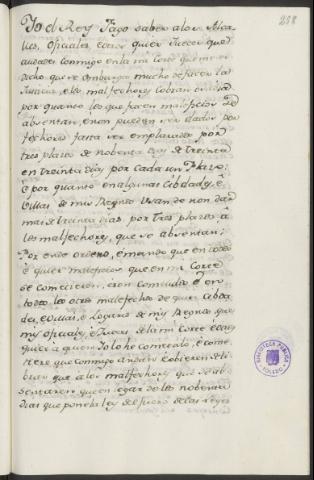 258
Yo el Rey Fago saber alos Alca
lles, oficiales, e otros quier Jueces que
andades conmigo en la mi Corte que me es
dicho que se embarga mucho de facer la
Justicia, e los malfechores cobran osadia
por quanto los que facen maleficios se
absentan, e non pueden ser dados por
fechores fasta ser emplazados por
tres plazos de nobenta dias de treinta
en treinta dias por cada un Plazo:
e por quanto en algunas Cibdades, e
Villas de mis Regnos usan de non dar
mas de treinta dias por tres plazos a
los malfechores, que se absentan;
Por ende ordeno, e mando que en todos
e quier maleficios que en mi Corte
se cometieren, e son cometidos e en
todos los otros malefichos de quier cibda
des, e Villas, e Logares de mis Regnos que
mis oficiales, e Jueces de la mi Corte e otro
quier a quien Yo lo he cometido, e come
tiere que conmigo andan e obieren de li
brar que a los malfechores que se ab
sentaren que en lugar de los nobenta
dias que pone la ley del fuero de las leyes
BIBLIOTECA PUBLICA
TOLEDO